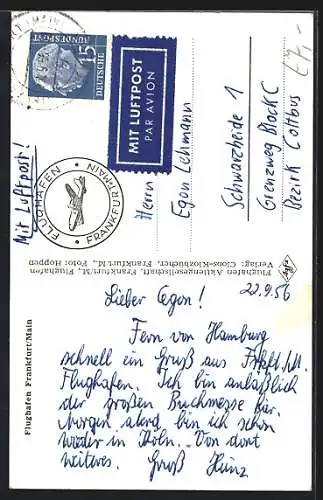 15
DEUTSCHE
BUNDESPOST
MIT LUFTPOST
PAR AVION
FLUGHAFEN
FRANKFURT/MAIN
Mit Luftpost!
Herrn
Egon Lehmann
Schwarzheide 1
Grenzweg Block C
Bezirk Cottbus
Flughafen Aktiengesellschaft, Frankfurt/M., Flughafen
Verlag: Cloos-Klozbücher, Frankfurt/M., Foto: Hoppen
Flughafen Frankfurt/Main
22.9.56
Lieber Egon!
Fern von Hamburg
schnell ein Gruß aus Frkft/M.
Flughafen. Ich bin anläßlich
der großen Buchmesse hier.
Morgen abend bin ich schon
wieder in Köln. Von dort
weiteres. Gruß Heinz